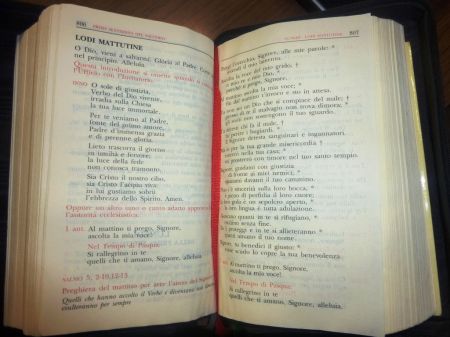 800
PRIMA SETTIMANA DEL SALTERIO
LODI MATTUTINE
O Dio, vieni a salvarmi. Gloria al Padre. Come
nel principio. Alleluia.
Questa introduzione si omette quando si comincia
l'Ufficio con l'Invitatorio.
INNO O sole di giustizia,
Verbo del Dio vivente,
irradia sulla Chiesa
la tua luce immortale.
Per te veniamo al Padre,
fonte del primo amore,
Padre d'immensa grazia
e di perenne gloria.
Lieto trascorra il giorno
in umiltà e fervore;
la luce della fede
non conosca tramonto.
Sia Cristo il nostro cibo,
sia Cristo l'acqua viva:
in lui gustiamo sobri
l'ebbrezza dello Spirito. Amen.
Oppure un altro inno o canto adatto approvato dal-
l'autorità ecclesiastica.
1 ant. Al mattino ti prego, Signore,
ascolta la mia voce!
Nel Tempo di Pasqua:
Si rallegrino in te
quelli che ti amano, Signore, alleluia.
SALMO 5, 2-10.12-13
Preghiera del mattino per avere l'aiuto del Signore
Quelli che hanno accolto il Verbo e diventano sua dimora,
esulteranno per sempre
LODI MATTUTINE
801
Porgi l'orecchio, Signore, alle mie parole: *
intendi il mio lamento.
Ascolta la voce del mio grido, †
o mio re e mio Dio, *
perché ti prego, Signore.
Al mattino ascolta la mia voce; *
fin dal mattino t'invoco e sto in attesa.
Tu non sei un Dio che si compiace del male; †
presso di te il malvagio non trova dimora; *
gli stolti non sostengono il tuo sguardo.
Tu detesti chi fa il male, †
fai perire i bugiardi. *
Il Signore detesta sanguinari e ingannatori.
Ma io per la tua grande misericordia †
entrerò nella tua casa; *
mi prostrerò con timore nel tuo santo tempio.
Signore, guidami con giustizia
di fronte ai miei nemici; *
spianami davanti il tuo cammino.
Non c'è sincerità sulla loro bocca, *
è pieno di perfidia il loro cuore;
la loro gola è un sepolcro aperto, *
la loro lingua è tutta adulazione.
Gioiscano quanti in te si rifugiano, *
esultino senza fine.
Tu li proteggi e in te si allieteranno *
quanti amano il tuo nome.
Signore, tu benedici il giusto: *
come scudo lo copre la tua benevolenza.
1 ant. Al mattino ti prego, Signore,
ascolta la mia voce!
Nel Tempo di Pasqua:
Si rallegrino in te
quelli che ti amano, Signore, alleluia.